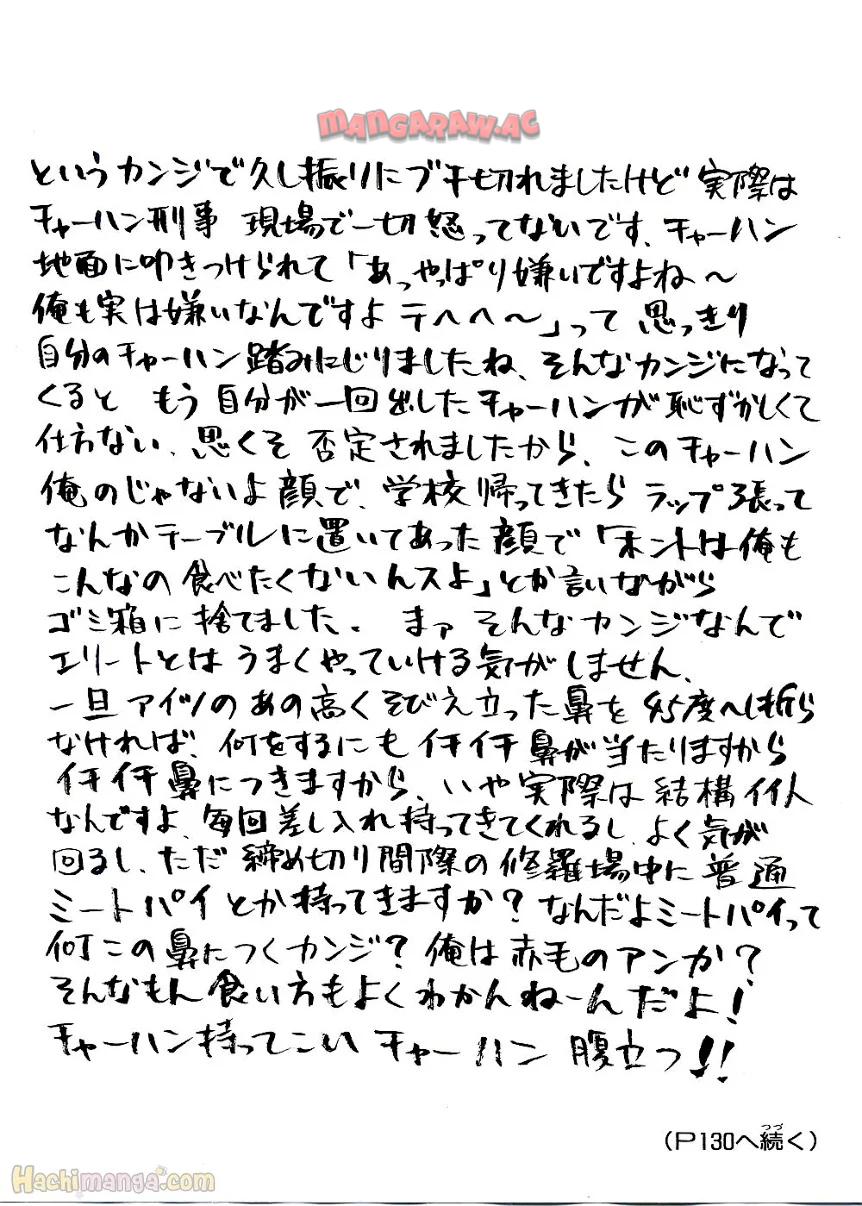 MANGARAW.AC
というカンジで久し振りにブチ切れましたけど実際は
チャーハン刑事 現場で一切怒ってないです、チャーハン
地面に叩きつけられて「あっやっぱり嫌いですよね〜
俺も実は嫌いなんですよ テヘヘ〜」って 思っきり
自分のチャーハン踏みにじりましたね、そんなカンジになって
くると もう 自分が一回出したチャーハンが恥ずかしくて
仕方ない、思くそ 否定されましたから、このチャーハン
俺のじゃないよ顔で、学校帰ってきたら ラップ張って
なんかテーブルに置いてあった顔で「ホントは俺も
こんなの 食べたくないんスよ」とか言いながら
ゴミ箱に捨てました、 まァ そんなカンジなんで
エリートとは うまくやっていける気がしません、
一旦アイツのあの高くそびえ立った鼻を45度へし折ら
なければ、何をするにもイチイチ鼻が当たりますから
イチイチ鼻につきますから、いや実際は結構イイ人
なんですよ、毎回差し入れ持ってきてくれるし、よく気が
回るし、ただ 締め切り間際の修羅場中に 普通
ミートパイとか持ってきますか？なんだよミートパイって
何この鼻につくカンジ？俺は赤毛のアンか？
そんなもん 食い方もよくわかんねーんだよ！
チャーハン持ってこい チャーハン 腹立つ!!
(P130へ続く)
つづ
Hachimanga.com